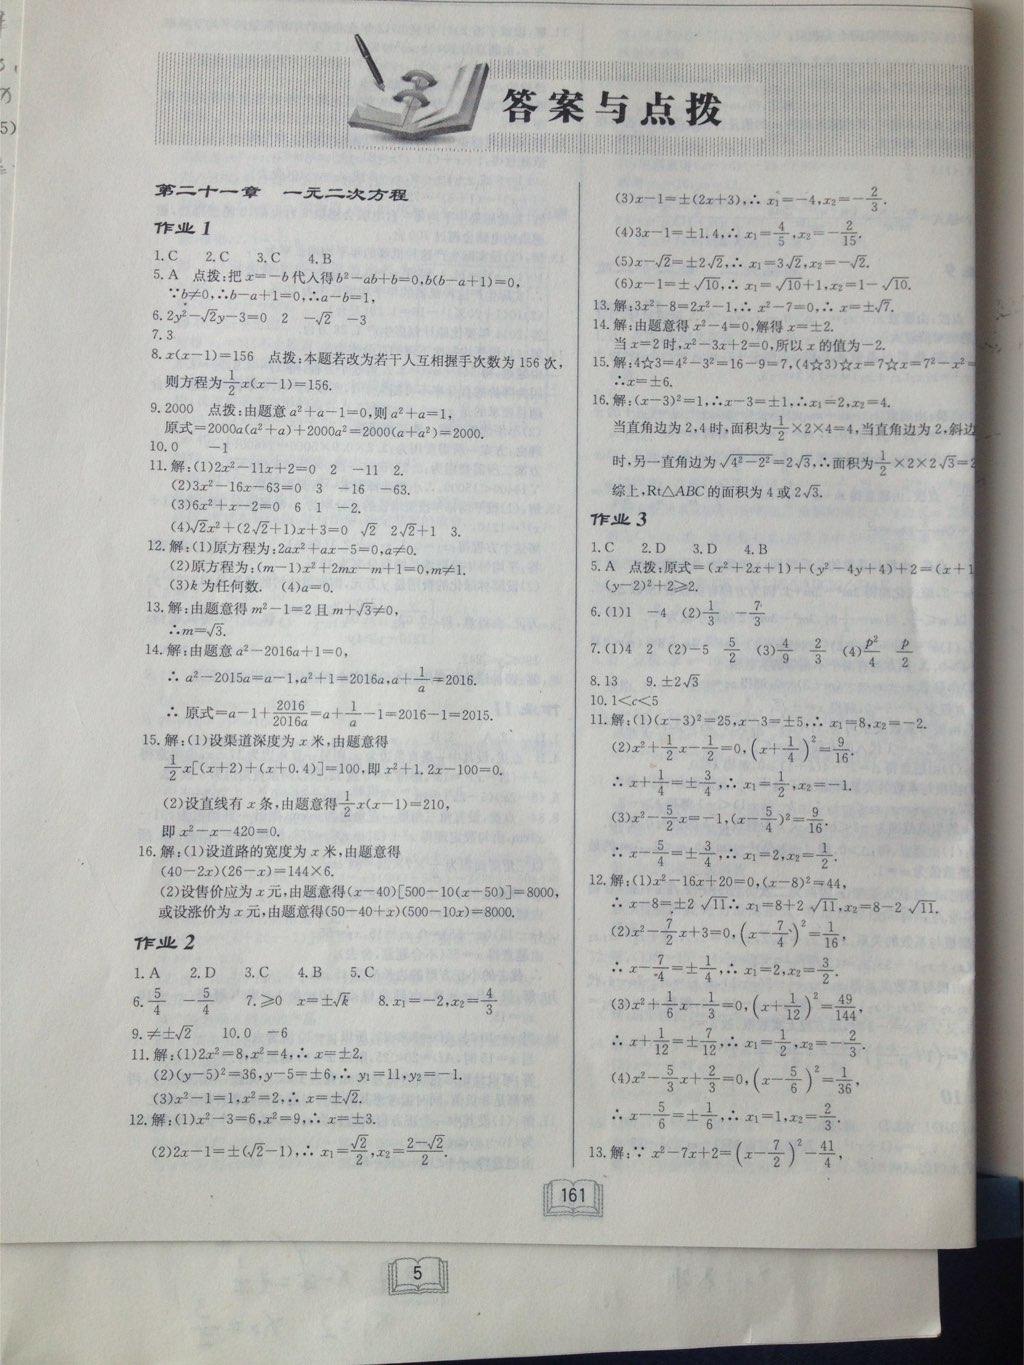 答案与点拨
第二十一章 一元二次方程
作业1
1.C 2.C 3.C 4.B
5.A 点拨:把x=-b代入得b²-ab+b=0,b(b-a+1)=0,
∵b≠0,∴b-a+1=0,∴a-b=1,
6.2y²-√2y-3=0 2 -√2 -3
7.3
8.x(x-1)=156 点拨:本题若改为若干人互相握手次数为156次,
则方程为1/2x(x-1)=156.
9.2000 点拨:由题意a²+a-1=0,则a²+a=1,
原式=2000a(a²+a)+2000a²=2000(a+a²)=2000.
10.0 -1
11.解:(1)2x²-11x+2=0 2 -11 2.
(2)3x²-16x-63=0 3 -16 -63.
(3)6x²+x-2=0 6 1 -2.
(4)√2x²+(2√2+1)x+3=0 √2 2√2+1 3.
12.解:(1)原方程为:2ax²+ax-5=0,a≠0.
(2)原方程为:(m-1)x²+2mx-m+1=0,m≠1.
(3)k为任何数. (4)a=0.
13.解:由题意得m²-1=2且m+√3≠0,
∴m=√3.
14.解:由题意a²-2016a+1=0,
∴a²-2015a=a-1,a²+1=2016a,a+1/a=2016.
∴原式=a-1+2016/2016a=a+1/a-1=2016-1=2015.
15.解:(1)设渠道深度为x米,由题意得
1/2x[(x+2)+(x+0.4)]=100,即x²+1.2x-100=0.
(2)设直线有x条,由题意得1/2x(x-1)=210,
即x²-x-420=0.
16.解:(1)设道路的宽度为x米,由题意得
(40-2x)(26-x)=144×6.
(2)设售价应为x元,由题意得(x-40)[500-10(x-50)]=8000,
或设涨价为x元,由题意得(50-40+x)(500-10x)=8000.
作业2
1.A 2.D 3.C 4.B 5.C
6.5/4 -5/4 7.≥0 x=±√k 8.x₁=-2,x₂=4/3
9.≠±√2 10.0 -6
11.解:(1)2x²=8,x²=4,∴x=±2.
(2)(y-5)²=36,y-5=±6,∴y₁=11,y₂=-1.
(3)x²-1=1,x²=2,∴x=±√2.
12.解:(1)x²-3=6,x²=9,∴x=±3.
(2)2x-1=±(√2-1),∴x₁=√2/2,x₂=(2-√2)/2.
(3)x-1=±(2x+3),∴x₁=-4,x₂=-2/3.
(4)3x-1=±1.4,∴x₁=4/5,x₂=-2/15.
(5)x-√2=±2√2,∴x₁=3√2,x₂=-√2.
(6)x-1=±√10,∴x₁=√10+1,x₂=1-√10.
13.解:3x²-8=2x²-1,∴x²-7=0,∴x=±√7.
14.解:由题意得x²-4=0,解得x=±2.
当x=2时,x²-3x+2=0,所以x的值为-2.
15.解:4☆3=4²-3²=16-9=7,(4☆3)☆x=7☆x=7²-x²=
∴x=±6.
16.解:(x-3)²=1,∴x-3=±1,∴x₁=2,x₂=4.
当直角边为2,4时,面积为1/2×2×4=4,当直角边为2,斜边
时,另一直角边为√(4²-2²)=2√3,∴面积为1/2×2×2√3=2
综上,Rt△ABC的面积为4或2√3.
作业3
1.C 2.D 3.D 4.B
5.A 点拨:原式=(x²+2x+1)+(y²-4y+4)+2=(x+1
(y-2)²+2≥2.
6.(1)1 -4 (2)1/3 -7/3
7.(1)4 2 (2)-5 5/2 (3)4/9 2/3 (4)p²/4 p/2
8.13 9.±2√3
10.1<c<5
11.解:(1)(x-3)²=25,x-3=±5,∴x₁=8,x₂=-2.
(2)x²+1/2x-1/2=0,(x+1/4)²=9/16.
∴x+1/4=±3/4,∴x₁=1/2,x₂=-1.
(3)x²-5/2x=-1,(x-5/4)²=9/16.
∴x-5/4=±3/4,∴x₁=2,x₂=1/2.
12.解:(1)x²-16x+20=0,(x-8)²=44,
∴x-8=±2√11∴x₁=8+2√11,x₂=8-2√11.
(2)x²-7/2x+3=0,(x-7/4)²=1/16,
∴x-7/4=±1/4,∴x₁=2,x₂=3/2.
(3)x²+1/6x-1/3=0,(x+1/12)²=49/144,
∴x+1/12=±7/12,∴x₁=1/2,x₂=-2/3.
(4)x²-5/3x+2/3=0,(x-5/6)²=1/36,
∴x-5/6=±1/6,∴x₁=1,x₂=2/3.
13.解:∵x²-7x+2=(x-7/2)²-41/4,
161
5